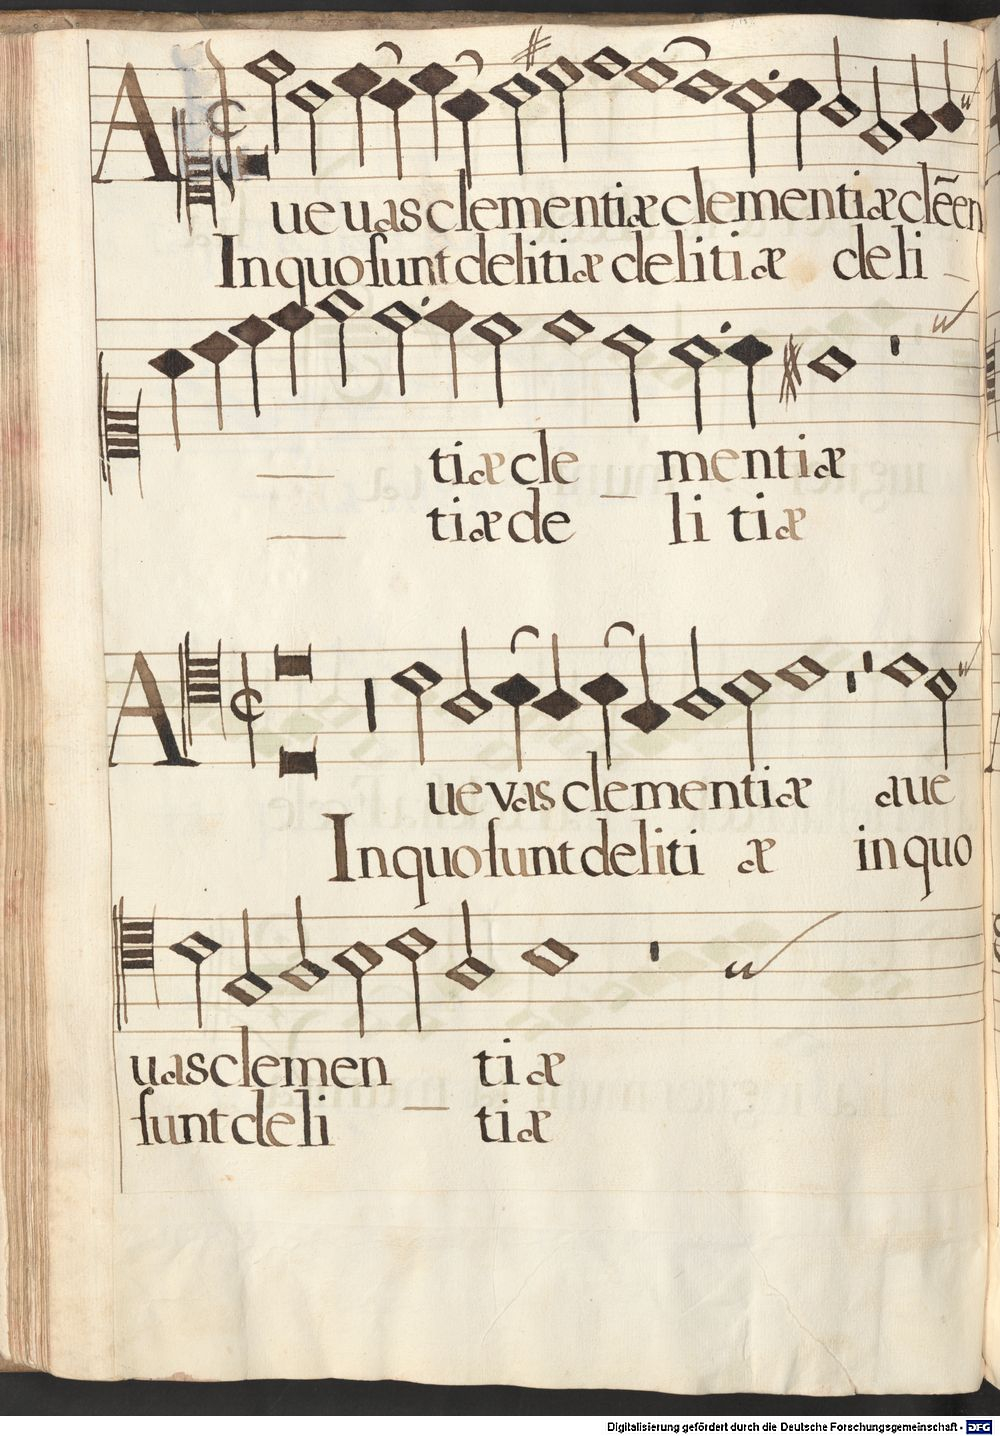 A
ue uas clementiæ clementiæ clẽen
In quo sunt delitiæ delitiæ deli
tiæ cle mentiæ
tiæ de li tiæ
A
ue vas clementiæ aue
In quo sunt deliti æ in quo
uas clemen tiæ
sunt deli tiæ
Digitalisierung gefördert durch die Deutsche Forschungsgemeinschaft - DFG